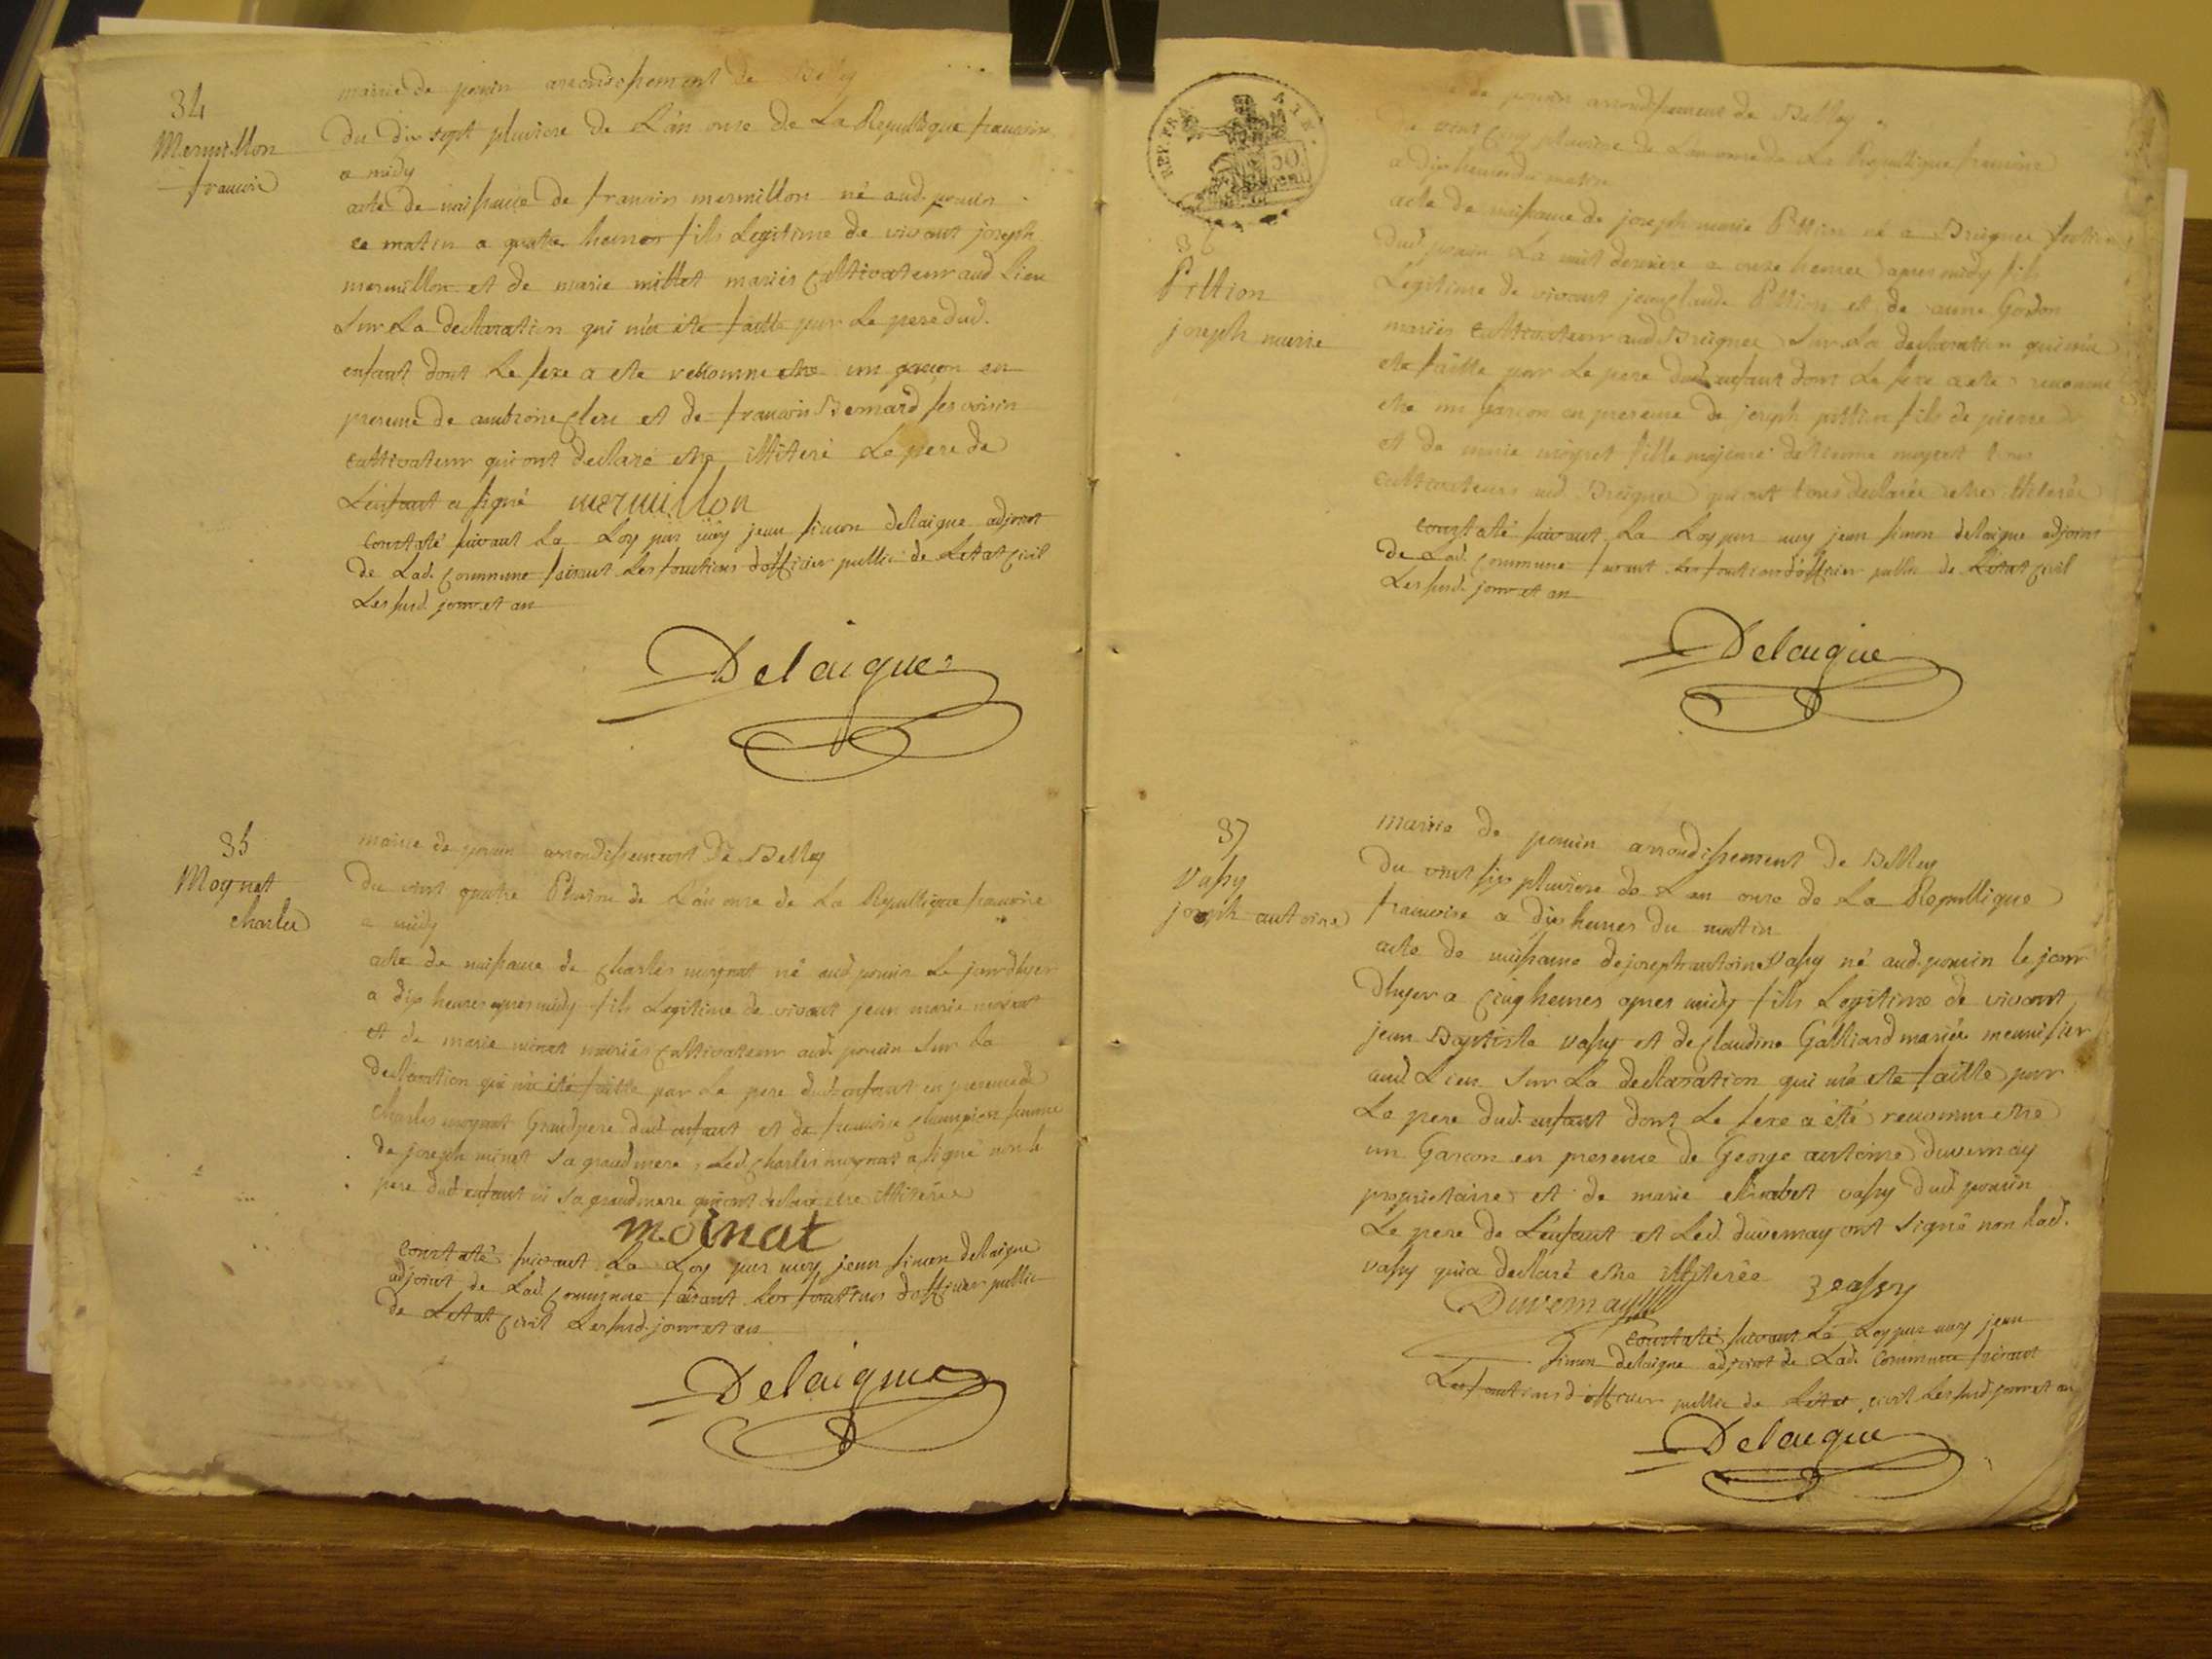 34
Mermillon
francois
mairie de pouin arrondissement de Belley
du dix sept pluviose de L'an onze de La Republique francoise
a midy
acte de naissance de francois mermillon né aud. pouin
ce matin a quatre heures fils Legitime de vivant joseph
mermillon et de marie millet mariés Cultivateur aud Lieu
Sur La declaration qui m'a été faitte par Le pere dud.
enfant dont Le sexe a ete reconnu etre un garcon en
presence de ambroise Clerc et de francois Bernard ses voisin
cultivateur qui ont declaré etre illiteré Le pere de
L'enfant a signé mermillon
Constaté suivant La Loy par moy jean simon delaigue adjoint
de Lad. Commune faisant Les fonctions d'officier public de Letat Civil
Les susd. jour et an
Delaigue
35
Moynat
charles
mairie de pouin arrondissement de Belley
du vint quatre Pluviose de L'an onze de La Republique francoise
a midy
acte de naissance de Charles moynat né aud pouin Le jour d'hyer
a dix heures apres midy fils Legitime de vivant jean marie moynat
et de marie minet mariés Cultivateur aud. pouin Sur La
declaration qui m'a été faitte par Le pere dud. enfant en presence de
Charles moynat Grand pere dud. enfant et de francoise Champion femme
de joseph minet Sa grand mere, Led. Charles moynat a signé non le
pere dud enfant ni Sa grand mere qui ont declaré etre illiterée
moinat
Constaté suivant La Loy par moy jean simon delaigue
adjoint de Lad. Commune faisant Les fonctions d'officier public
de Letat Civil Les susd. jour et an
Delaigue
REP. FRA.
AIN.
50
36
Pittion
joseph marie
de pouin arrondissement de Belley
vint cinq pluviose de L'an onze de La Republique francoise
a dix heures du matin
acte de naissance de joseph marie Pittion né a Brignee section
dud. pouin La nuit derniere a onze heures apres midy fils
Legitime de vivant jean claude Pittion et de anne Godon
mariés Cultivateur aud Brignee Sur La declaration qui m'a
ete faitte par Le pere dud. enfant dont Le sexe a ete reconnu
etre un Garcon en presence de joseph pittion fils de pierre
et de marie moynet fille majeure moynet tous
Cultivateurs aud. Brignee qui ont tous declarée etre illiterée
Constaté suivant La Loy par moy jean simon delaigue adjoint
de Lad. Commune faisant Les fonctions d'officier public de L'état Civil
Les susd. jour et an
Delaigue
37
Vassy
joseph antoine
Mairie de pouin arrondissement de Belley
du vint six pluviose de L'an onze de La Republique
francoise a dix heures du matin
acte de naissance de joseph antoine Vassy né aud. pouin le jour
d'hyer a Cinq heures apres midy fils Legitime de vivant
jean Baptiste vassy et de Claudine Galliard mariée meunisier
aud. Lieu Sur La declaration qui m'a ete faitte par
Le pere dud. enfant dont Le sexe a été reconnu etre
un Garcon en presence de George antoine duvernay
proprietaire et de marie elisabet vassy dud. pouin
Le pere de L'enfant et Led. duvernay ont signé non Lad.
vassy qui a declaré etre illiterée
Duvernay vassy
Constaté suivant La Loy par moy jean
simon delaigue adjoint de Lad. Commune faisant
Les fonctions d'officier public de Létat civil Les susd. jour et an
Delaigue